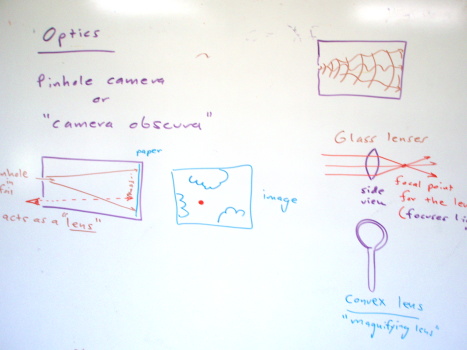 Optics
Pinhole camera
or
"camera obscura"
paper
in
acts as a "lens"
image
Glass lenses
side
view
focal point
for the
(focuses
Convex lens
"magnifying lens"